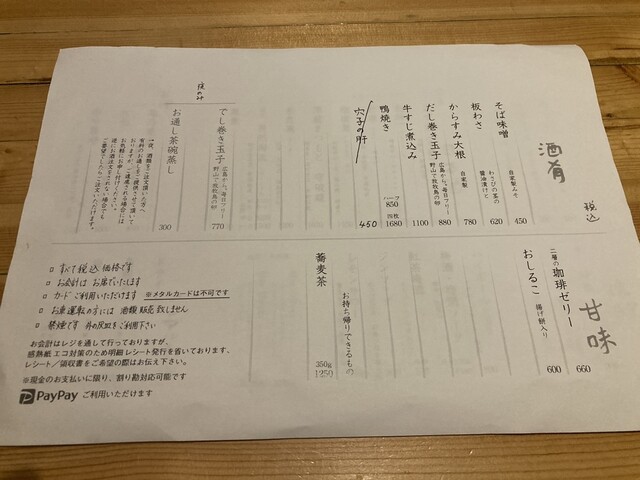 酒肴
税込
そば味噌 自家製みそ 450
板わさ わさびの茎の醤油漬けと 620
からすみ大根 自家製 780
だし巻き玉子 広島から、毎日フリー
野山で放牧鳥の卵 880
牛すじ煮込み 1100
鴨焼き ハーフ 850
四枚 1680
穴子の肝 450
でし巻き玉子 広島から、毎日フリー
野山で放牧鳥の卵 770
お通し茶碗蒸し 300
甘味
二層の珈琲ゼリー 660
おしるこ 揚げ餅入り 600
お持ち帰りできるもの
蕎麦茶 350g 1250
すべて税込価格です
お会計はお席でいたします
カードご利用いただけます ※メタルカードは不可です
お車運転の方には酒類販売致しません
禁煙です 外の灰皿をご利用下さい
お会計はレジを通して行っておりますが、
感熱紙エコ対策のため明細レシート発行を省いております、
レシート/領収書をご希望の際はお伝え下さい。
※現金のお支払いに限り、割り勘対応可能です
PayPay ご利用いただけます